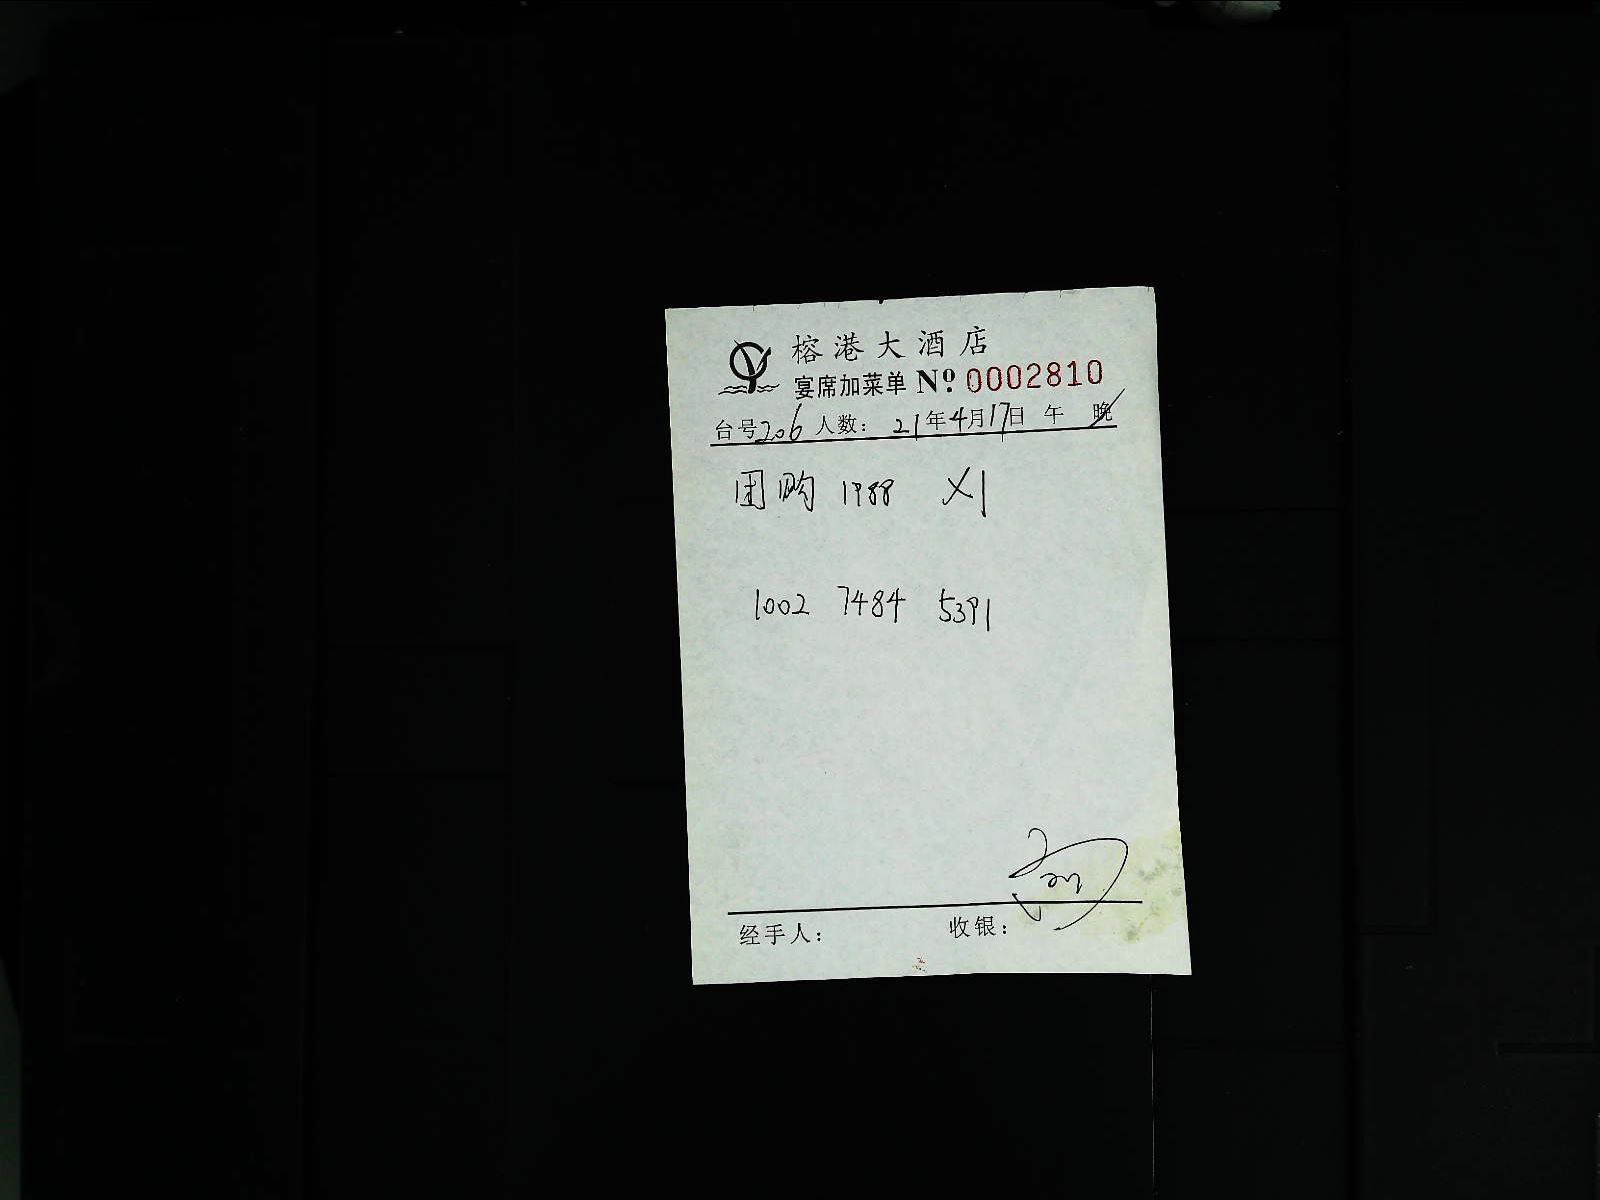 榕港大酒店
宴席加菜单 Nº 0002810
台号206 人数： 21年4月17日 午 晚
团购 1988 X1
1002 7484 5391
经手人： 收银：